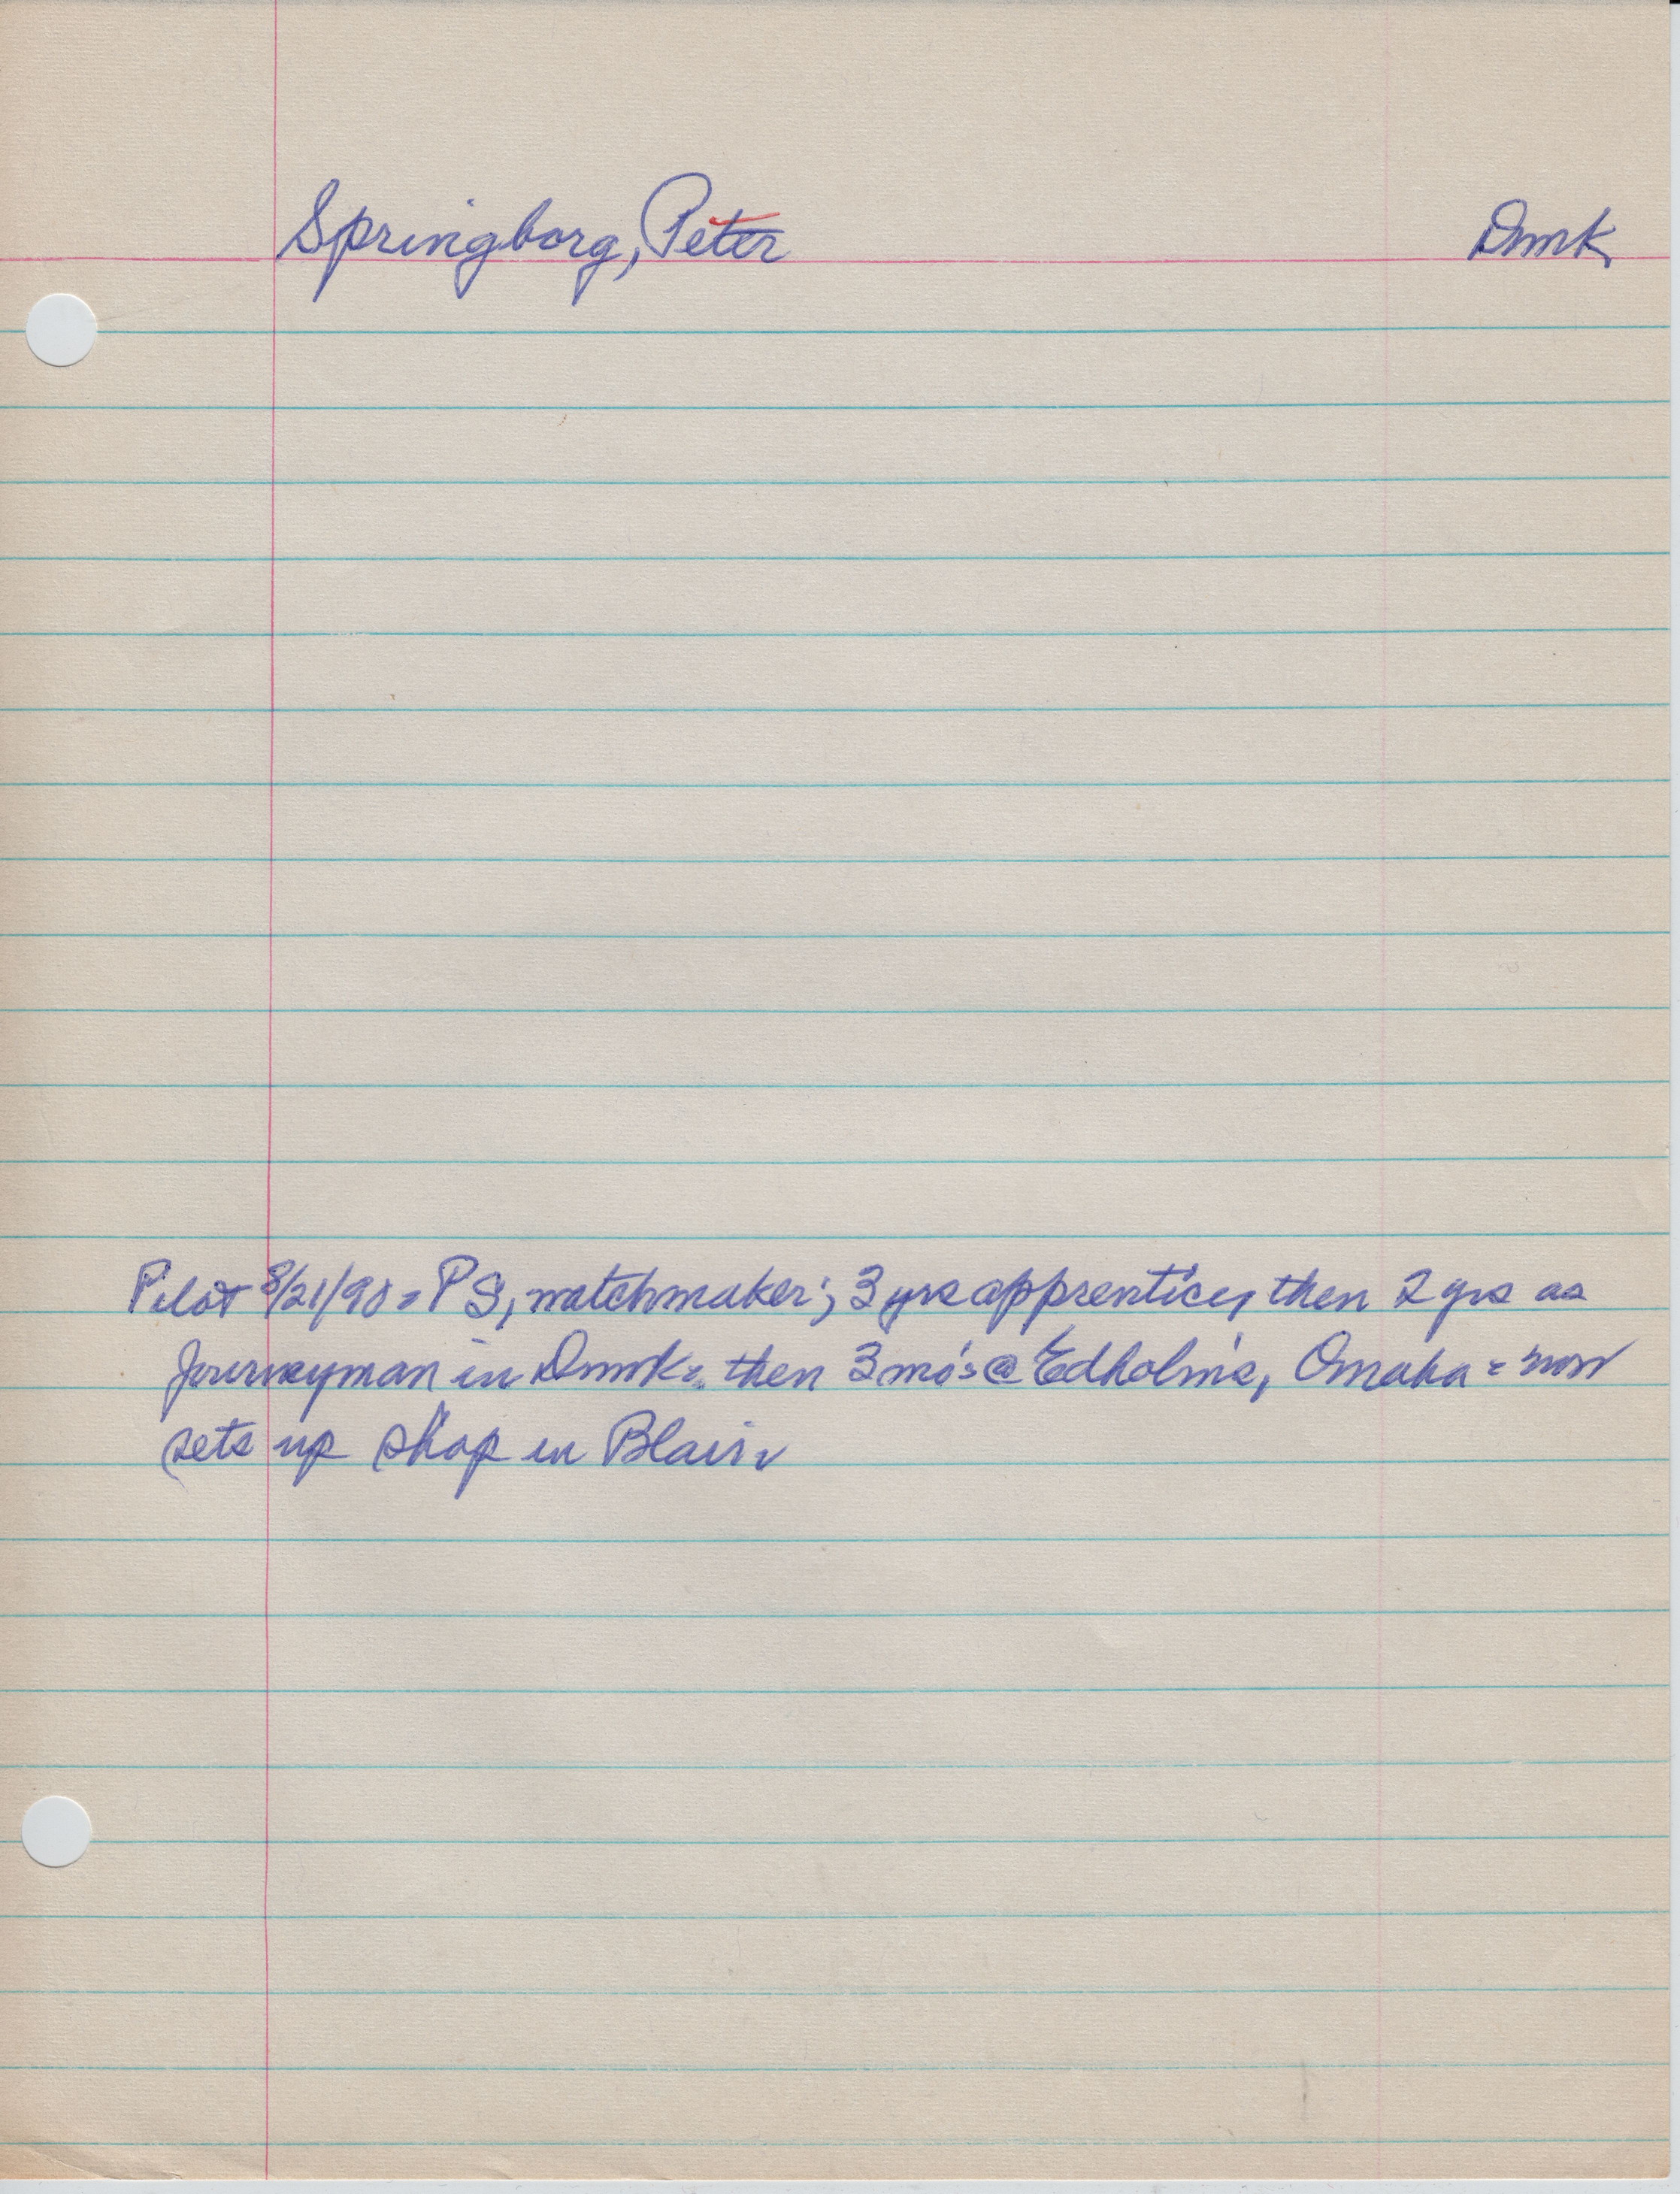 Springborg, Peter Dnmk
Pilot 8/21/90 = PS, watchmaker; 3 yrs apprentice, then 2 yrs as
Journeyman in Dnmk = then 3 mo's @ Edholm's, Omaha = now
sets up shop in Blair